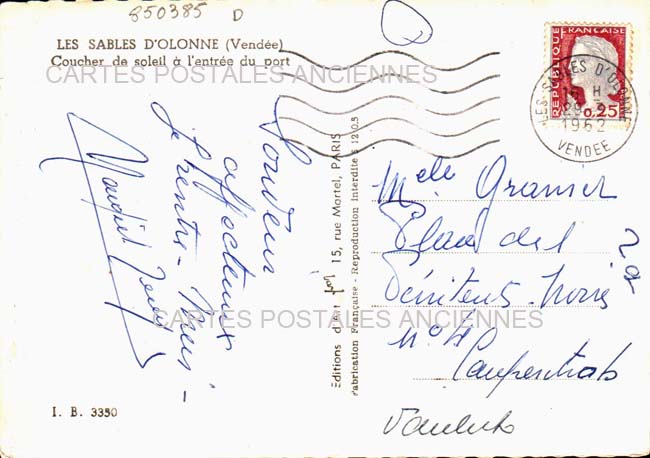 850385 D
LES SABLES D'OLONNE (Vendée)
Coucher de soleil à l'entrée du port
CARTES POSTALES ANCIENNES
REPUBLIQUE FRANÇAISE
0,25
LES SABLES D'OLONNE
15 H
29
1962
VENDEE
Souvenir
affectueux
Éditions d'Art
15, rue Martel, PARIS
Fabrication Française - Reproduction Interdite
Melle Granier
Place des
Pénitents Noirs
n° 4
Carpentras
Vaucluse
CARTES POSTALES ANCIENNES
I. B. 3350